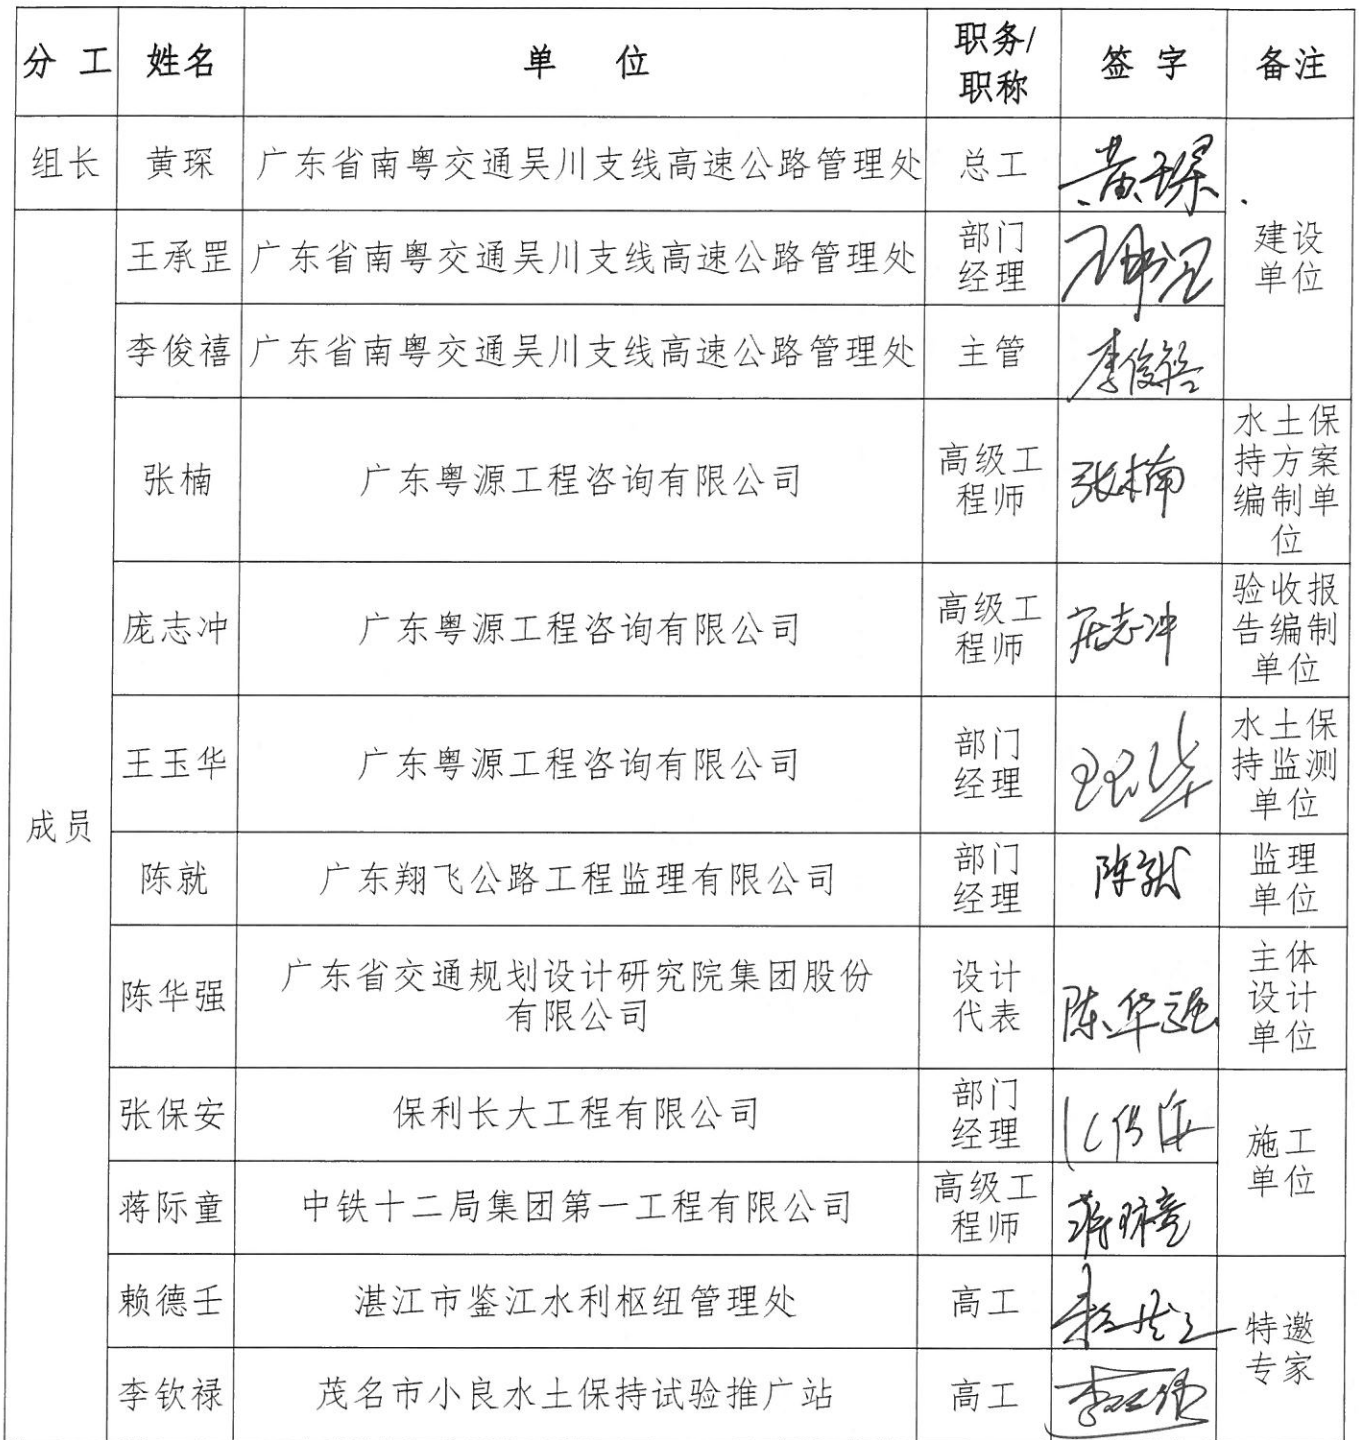 分 工 姓名 单 位 职务/职称 签 字 备注
组长 黄琛 广东省南粤交通吴川支线高速公路管理处 总工 黄琛 建设单位
成员 王承罡 广东省南粤交通吴川支线高速公路管理处 部门经理
李俊禧 广东省南粤交通吴川支线高速公路管理处 主管 李俊禧
张楠 广东粤源工程咨询有限公司 高级工程师 张楠 水土保持方案编制单位
庞志冲 广东粤源工程咨询有限公司 高级工程师 庞志冲 验收报告编制单位
王玉华 广东粤源工程咨询有限公司 部门经理 王玉华 水土保持监测单位
陈就 广东翔飞公路工程监理有限公司 部门经理 陈就 监理单位
陈华强 广东省交通规划设计研究院集团股份有限公司 设计代表 陈华强 主体设计单位
张保安 保利长大工程有限公司 部门经理 施工单位
蒋际童 中铁十二局集团第一工程有限公司 高级工程师 蒋际童
赖德壬 湛江市鉴江水利枢纽管理处 高工 特邀专家
李钦禄 茂名市小良水土保持试验推广站 高工